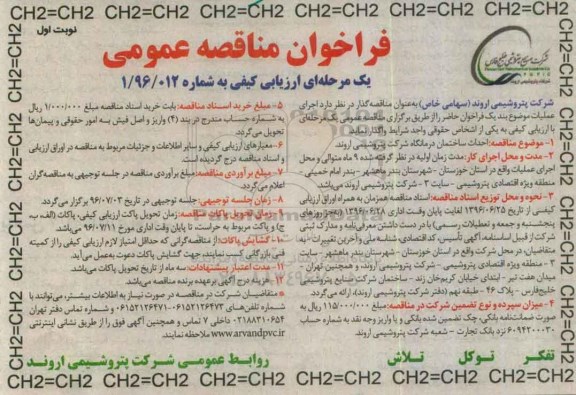 CH2=CH2 CH2=CH2 CH2=CH2 CH2=CH2 CH2=CH2 CH2=CH2 CH2=CH2
نوبت اول
فراخوان مناقصه عمومی
یک مرحله‌ای ارزیابی کیفی به شماره ۱/۹۶/۰۱۲
شرکت پتروشیمی اروند (سهامی خاص) به‌عنوان مناقصه‌گذار در نظر دارد اجرای
عملیات موضوع بند یک فراخوان حاضر را از طریق برگزاری مناقصه عمومی یک مرحله‌ای
با ارزیابی کیفی به یکی از اشخاص حقوقی واجد شرایط واگذار نماید.
۱- موضوع مناقصه: احداث ساختمان درمانگاه شرکت پتروشیمی اروند
۲- مدت و محل اجرای کار: مدت زمان اولیه در نظر گرفته شده ۹ ماه متوالی و محل
اجرای عملیات واقع در استان خوزستان - شهرستان بندر ماهشهر - بندر امام خمینی -
منطقه ویژه اقتصادی پتروشیمی - سایت ۳ - شرکت پتروشیمی اروند می‌باشد.
۳- نحوه و محل توزیع اسناد مناقصه: اسناد مناقصه همزمان به همراه اوراق ارزیابی
کیفی از تاریخ ۱۳۹۶/۰۶/۲۵ لغایت پایان وقت اداری ۱۳۹۶/۰۶/۲۸ (به‌جز روزهای
پنجشنبه و جمعه و تعطیلات رسمی) با در دست داشتن معرفی‌نامه و مدارک ثبتی
شرکت از قبیل اساسنامه، آگهی تأسیس، کد اقتصادی، شناسه ملی و آخرین تغییرات - به
متقاضیان، در محل شرکت واقع در استان خوزستان - شهرستان بندر ماهشهر - سایت
۳ منطقه ویژه اقتصادی پتروشیمی - شرکت پتروشیمی اروند، و همچنین تهران -
میدان هفت تیر - ابتدای خیابان کریم‌خان زند - ساختمان شرکت صنایع پتروشیمی
خلیج‌فارس - پلاک ۴۶ - طبقه نهم (دفتر شرکت پتروشیمی اروند)، ارائه می‌گردد.
۴- میزان سپرده و نوع تضمین شرکت در مناقصه: مبلغ ۱۱۵/۰۰۰/۰۰۰ ریال به
صورت ضمانت‌نامه بانکی، چک تضمین شده بانکی و یا واریز وجه نقد به شماره حساب
۶۰۹۴۲۰۰۰۳۰ نزد بانک تجارت - شعبه شرکت پتروشیمی اروند
۵- مبلغ خرید اسناد مناقصه: بابت خرید اسناد مناقصه مبلغ ۱/۰۰۰/۰۰۰ ریال
به شماره حساب مندرج در بند (۴) واریز و اصل فیش به امور حقوقی و پیمان‌ها
تحویل می‌گردد.
۶- معیارهای ارزیابی کیفی و سایر اطلاعات و جزئیات مربوط به مناقصه در اوراق ارزیابی
و اسناد مناقصه درج گردیده است.
۷- مبلغ برآوردی مناقصه: مبلغ برآوردی مناقصه در جلسه توجیهی به مناقصه‌گران
اعلام می‌گردد.
۸- زمان جلسه توجیهی: جلسه توجیهی در تاریخ ۹۶/۰۷/۰۳ برگزار می‌گردد
۹- زمان تحویل پاکات مناقصه: زمان تحویل پاکت ارزیابی کیفی، پاکات (الف، ب،
ج) و پاکت مربوط به حراست، تا پایان وقت اداری مورخ ۹۶/۰۷/۱۱ می‌باشد
۱۰- گشایش پاکات: از مناقصه‌گرانی که حداقل امتیاز لازم ارزیابی کیفی را از کمیته
فنی بازرگانی کسب نمایند، جهت گشایش پاکات دعوت به‌عمل می‌آید.
۱۱- مدت اعتبار پیشنهادات: سه ماه از تاریخ تحویل پاکات می‌باشد.
۱۲- هزینه درج آگهی برعهده برنده مناقصه می‌باشد.
متقاضیان شرکت در مناقصه در صورت نیاز به اطلاعات بیشتر، می‌توانند با
شماره تلفن‌های ۰۶۱۵۲۱۲۶۴۷۳-۰۶۱۵۲۱۲۶۴۷۱ و شماره تماس دفتر تهران
۰۲۱۸۸۳۱۰۶۵۴ داخلی ۷ تماس و همچنین آگهی فوق را از طریق نشانی اینترنتی
www.arvandpvc.ir ملاحظه نمایند.
تفکر توکل تلاش
روابط عمومی شرکت پتروشیمی اروند
CH2=CH2 CH2=CH2 CH2=CH2 CH2=CH2 CH2=CH2 CH2=CH2 CH2=CH2